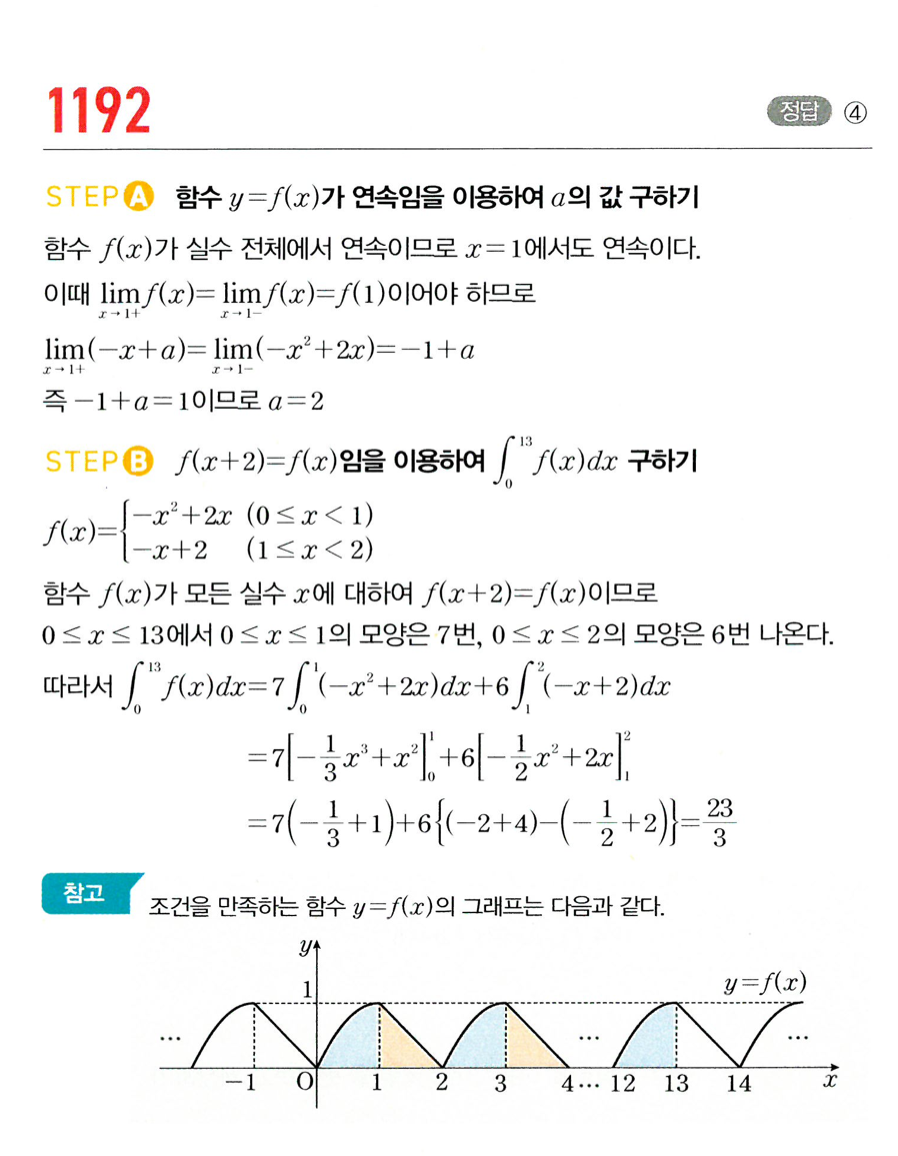 1192
정답 ④
STEP A 함수 y=f(x)가 연속임을 이용하여 a의 값 구하기
함수 f(x)가 실수 전체에서 연속이므로 x=1에서도 연속이다.
이때 lim_{x→1+} f(x)=lim_{x→1-} f(x)=f(1)이어야 하므로
lim_{x→1+}(-x+a)=lim_{x→1-}(-x²+2x)=-1+a
즉 -1+a=1이므로 a=2
STEP B f(x+2)=f(x)임을 이용하여 ∫_0^13 f(x)dx 구하기
f(x)={-x²+2x (0≤x<1)
-x+2 (1≤x<2)
함수 f(x)가 모든 실수 x에 대하여 f(x+2)=f(x)이므로
0≤x≤13에서 0≤x≤1의 모양은 7번, 0≤x≤2의 모양은 6번 나온다.
따라서 ∫_0^13 f(x)dx=7∫_0^1(-x²+2x)dx+6∫_1^2(-x+2)dx
=7[-1/3x³+x²]_0^1+6[-1/2x²+2x]_1^2
=7(-1/3+1)+6{(-2+4)-(-1/2+2)}=23/3
참고 조건을 만족하는 함수 y=f(x)의 그래프는 다음과 같다.
y
1
y=f(x)
... ... ...
-1 O 1 2 3 4 ... 12 13 14 x